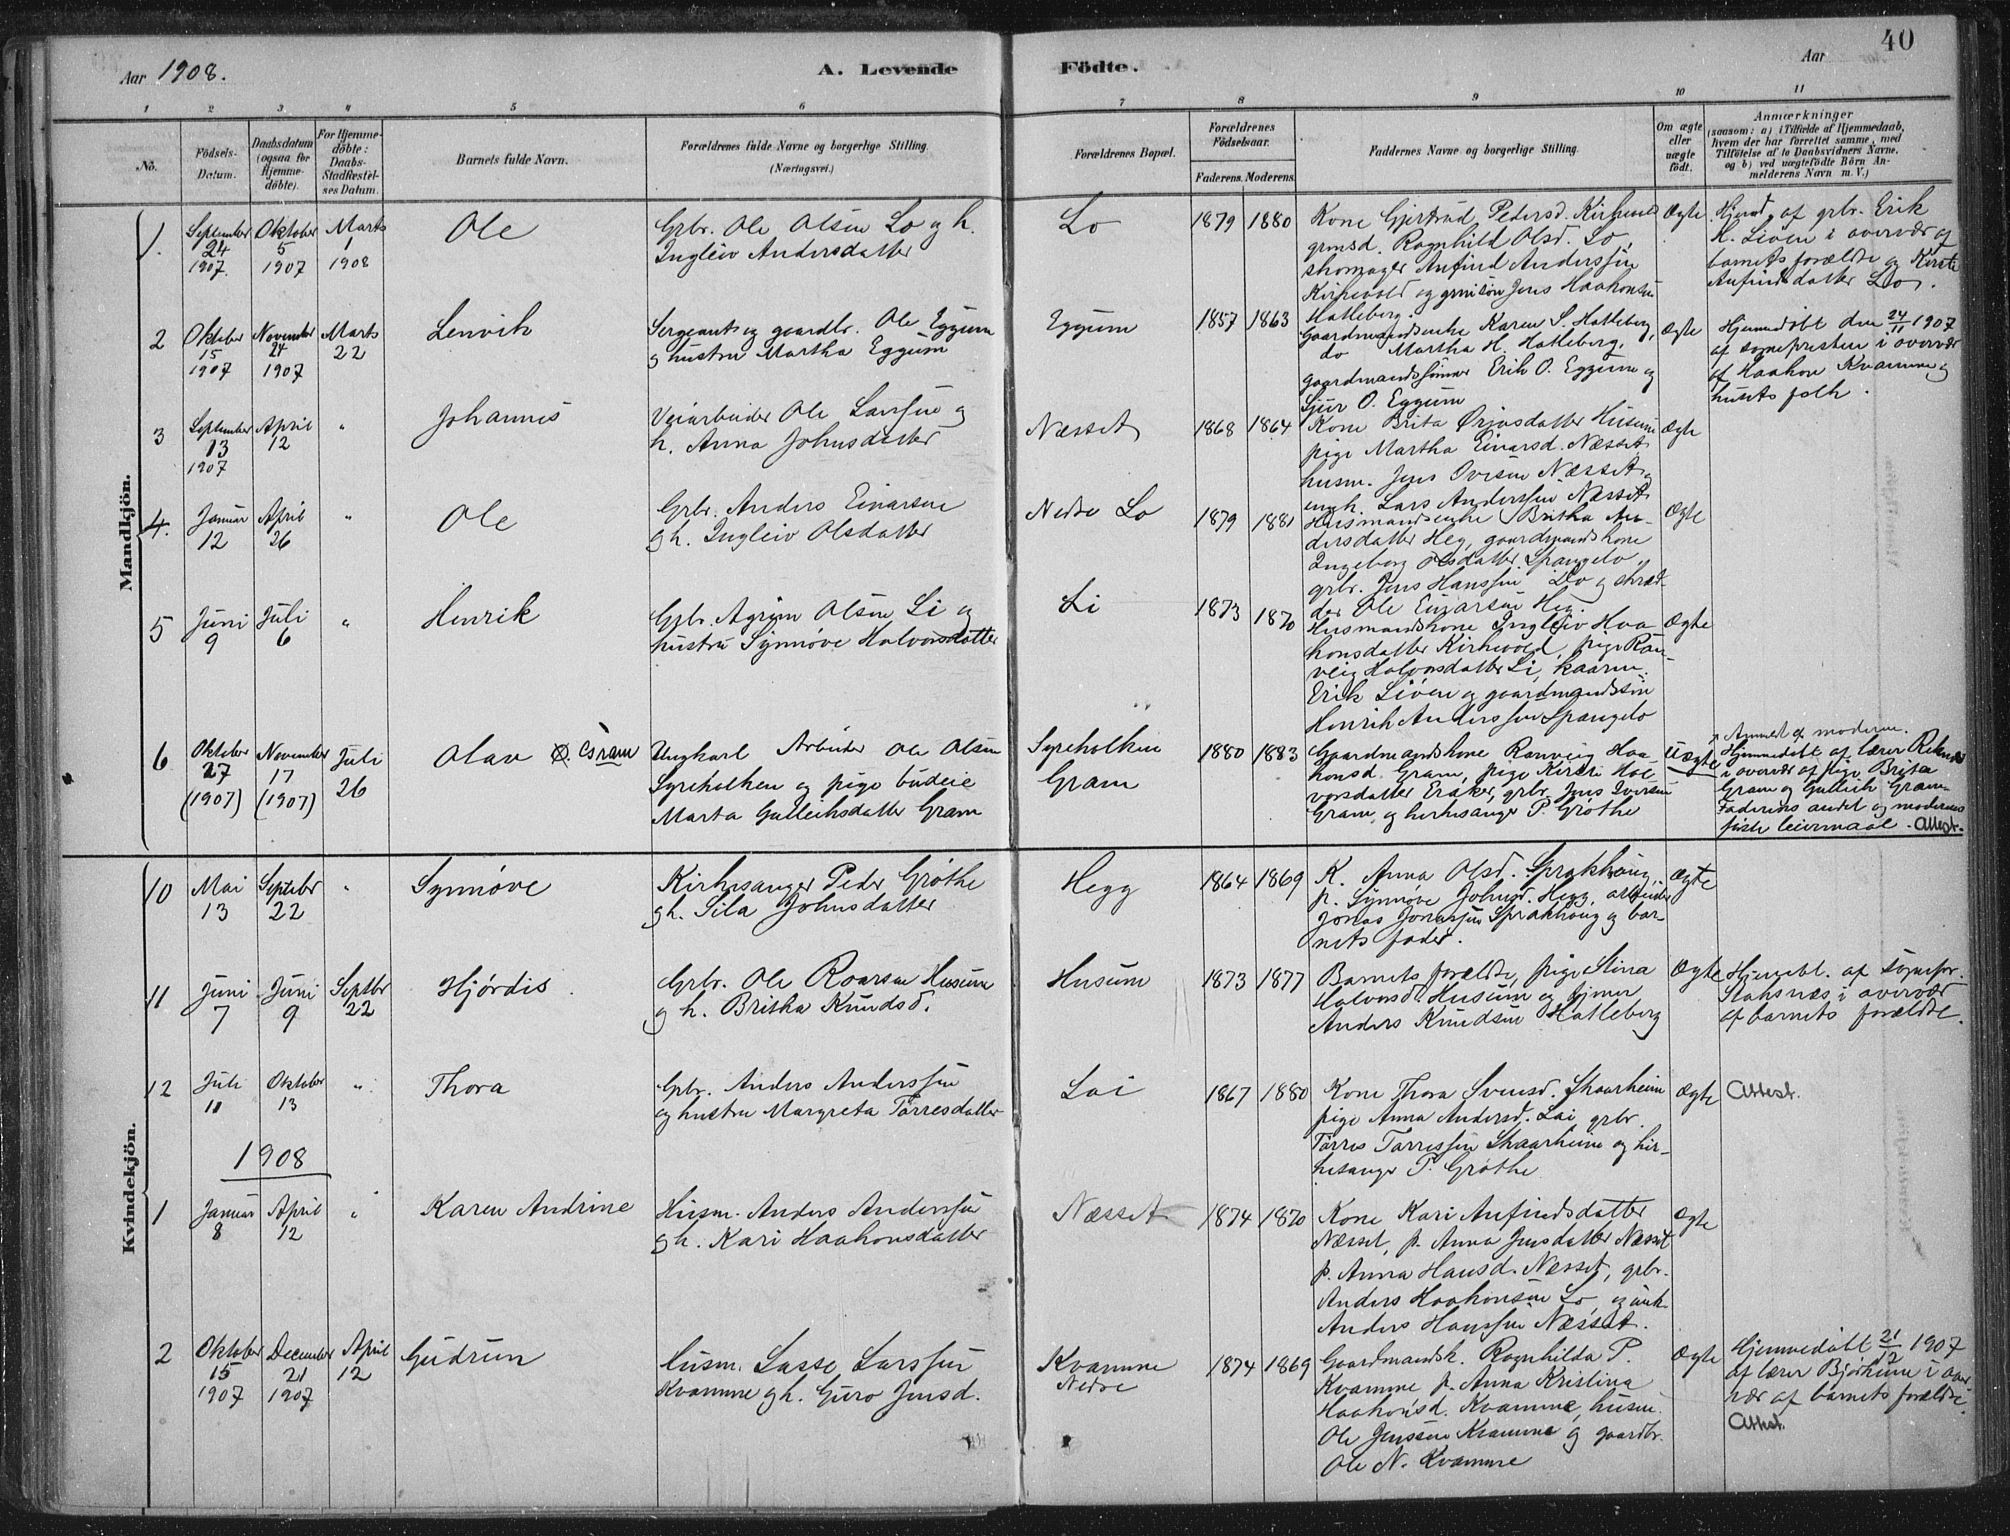 Aar 1908.
A. Levende Födte.
Aar
40
1 2 3 4 5 6 7 8 9 10 11
No.
Födsels-
Datum.
Daabsdatum
(ogsaa for
Hjemme-
döbte).
For Hjemme-
döbte:
Daabs-
Stadfæstel-
ses Datum.
Barnets fulde Navn.
Forældrenes fulde Navne og borgerlige Stilling.
(Næringsvei.)
Forældrenes Bopæl.
Forældrenes
Födselsaar.
Faderens. Moderens.
Faddernes Navne og borgerlige Stilling.
Om ægte
eller
uægte
födt.
Anmærkninger
(saasom: a) i Tilfælde af Hjemmedaab,
hvem der har forrettet samme, med
Tilföielse af to Daabsvidners Navne,
og b) ved uægtefödte Börn An-
melderens Navn m. V.)
Mandkjön.
1.
September
24
1907.
Oktober
5
1907
Marts
1
1908
Ole
Grbr. Ole Olsen Lo og h.
Ingleiv Andersdatter
Lo
1879 1880
Kone Gjertrud Pedersd. Kirkevold
grmsd. Ragnhild Olsd. Lo,
skomager Anfind Anderssen
Kirkevold og grmsön Jens Haakonsen
Hatleberg.
Ægte
Hjemd. af grbr. Erik
H. Liöen i overvær af
barnets forældre og Kirsti
Anfindsdatter Lo.
2
Oktober
15
1907
November
24
1907
Marts
22
Lenvik
Sergeant og gaardbr. Ole Eggum
og hustru Martha Eggum
Eggum
1857 1863
Gaardmandsenke Karen S. Hatleberg,
do Martha H. Hatleberg,
gaardmandssönner Erik O. Eggum og
Sjur O. Eggum
Ægte
Hjemmedöbt den 24/11 1907
af sognepresten i overvær
af Haakon Kvamme og
husets folk.
3
September
13
1907
April
12
"
Johannes
Veiarbeider Ole Larssen og
h. Anna Johnsdatter
Næsset
1868 1864
Kone Brita Husum
pige Martha Einarsd. Næsset
husm. Jens Næsset
ungk. Lars Anderssen Næsset
Ægte
4.
Januar
12
April
26
"
Ole
Grbr. Anders Einarsen
og h. Ingleiv Olsdatter
Nedre Lo
1879 1881
Husmandsenke Britha An-
dersdatter Heg, gaardmandskone
Ingeborg Olsdatter Spangelo,
grbr. Jens Hanssen Lo og skræd-
der Ole Einarsen Heg.
Ægte
5
Juni
9
Juli
6
"
Henrik
Grbr. Agrim Olsen Li og
hustru Synnöve Halvorsdatter
Li
1873 1870
Husmandskone Ingleiv Haa-
konsdatter Kirkevold, pige Ran-
veig Halvorsdatter Li, kaarm.
Erik Liöen og gaardmandssön
Henrik Anderssen Spangelo
Ægte
6
Oktober
27
(1907)
November
17
(1907)
Juli
26
Olav
Ungkarl Arbeider Ole Olsen
Syreholken og pige budeie
Marta Gulleiksdatter Gram
Syreholken
Gram
1880 1883
Gaardmandskone Ranveig Haa-
konsd. Gram, pige Kirsti Hal-
vorsdatter Eraker, grbr. Jens Iversen
Gram, og kirkesanger P. Gröthe
Uægte
Anmeldt af moderen.
Hjemmedöbt af lærer
i overvær af pige Brita
Gram og Gulleik Gram.
Faderens andet og moderens
förste leiermaal. Attest.
Kvindekjön.
10
Mai
13
Septebr
22
"
Synnöve
Kirkesanger Peder Gröthe
og h. Sila Johnsdatter
Hegg
1864 1869
K. Anna Olsd. Sprakhaug,
p. Synnöve Johnsd. Hegg, arbeider
Jonas Jonassen Sprakhaug og bar-
nets fader.
Ægte
11
Juni
7
Juni
9
Septbr
22
Hjördis
Grbr. Ole Roarsen Husum
og h. Britha Knudsd.
Husum
1873 1877
Barnets forældre, pige Stina
Halvorsd. Husum og
Anders Knudsen Hatleberg
Ægte
Hjemdbt. af sognepr.
i overvær
af barnets forældre.
12
Juli
11
Oktober
13
"
Thora
Grbr. Anders Anderssen
og hustru Margreta Torresdatter
Lai
1867 1880
Kone Thora Svensd. Skaarheim
pige Anna Andersd. Lai grbr.
Torres Torressen Skaarheim og kir-
kesanger P. Gröthe
Ægte
Attest.
1908
1
Januar
8
April
12
"
Karen Andrine
Husm. Anders Anderssen
og h. Kari Haakonsdatter
Næsset
1874 1870
Kone Kari Anfindsdatter
Næsset, p. Anna Jensdatter Næsset
p. Anna Hansd. Næsset, grbr.
Anders Haakonsen Lo og ungk.
Anders Hanssen Næsset.
Ægte
2
Oktober
15
1907
December
21
1907
April
12
Gudrun
Husm. Lasse Larssen
Kvamme og h. Guro Jensd.
Kvamme
Nedre
1874 1869
Gaardmandsk. Ragnhilda P.
Kvamme p. Anna Kristina
Haakonsd. Kvamme, husm.
Ole Jenssen Kvamme og gaardbr.
Ole N. Kvamme
Ægte
Hjemmedöbt 21/12 1907
af lærer Bjorkum i over-
vær af barnets forældre.
Attest.